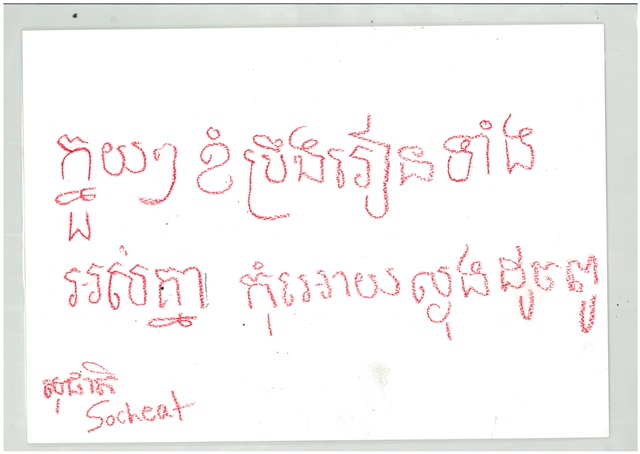 ក្មួយៗ ខំប្រឹងរៀនទាំង
អស់គ្នា កុំអោយល្ងង់ដូចពូ
សុជាតិ
Socheat